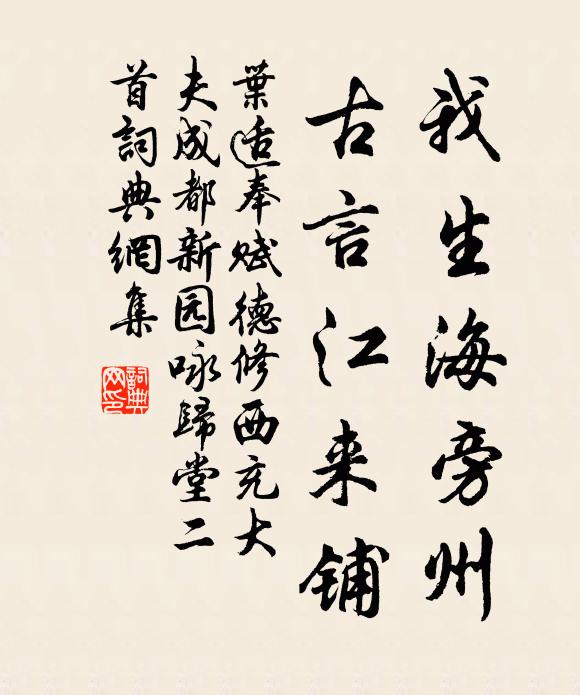 我生海旁州
古言江来铺
葉适奉赋德修西充大
夫成都新园咏歸堂二
首詞典網集
詞典網印